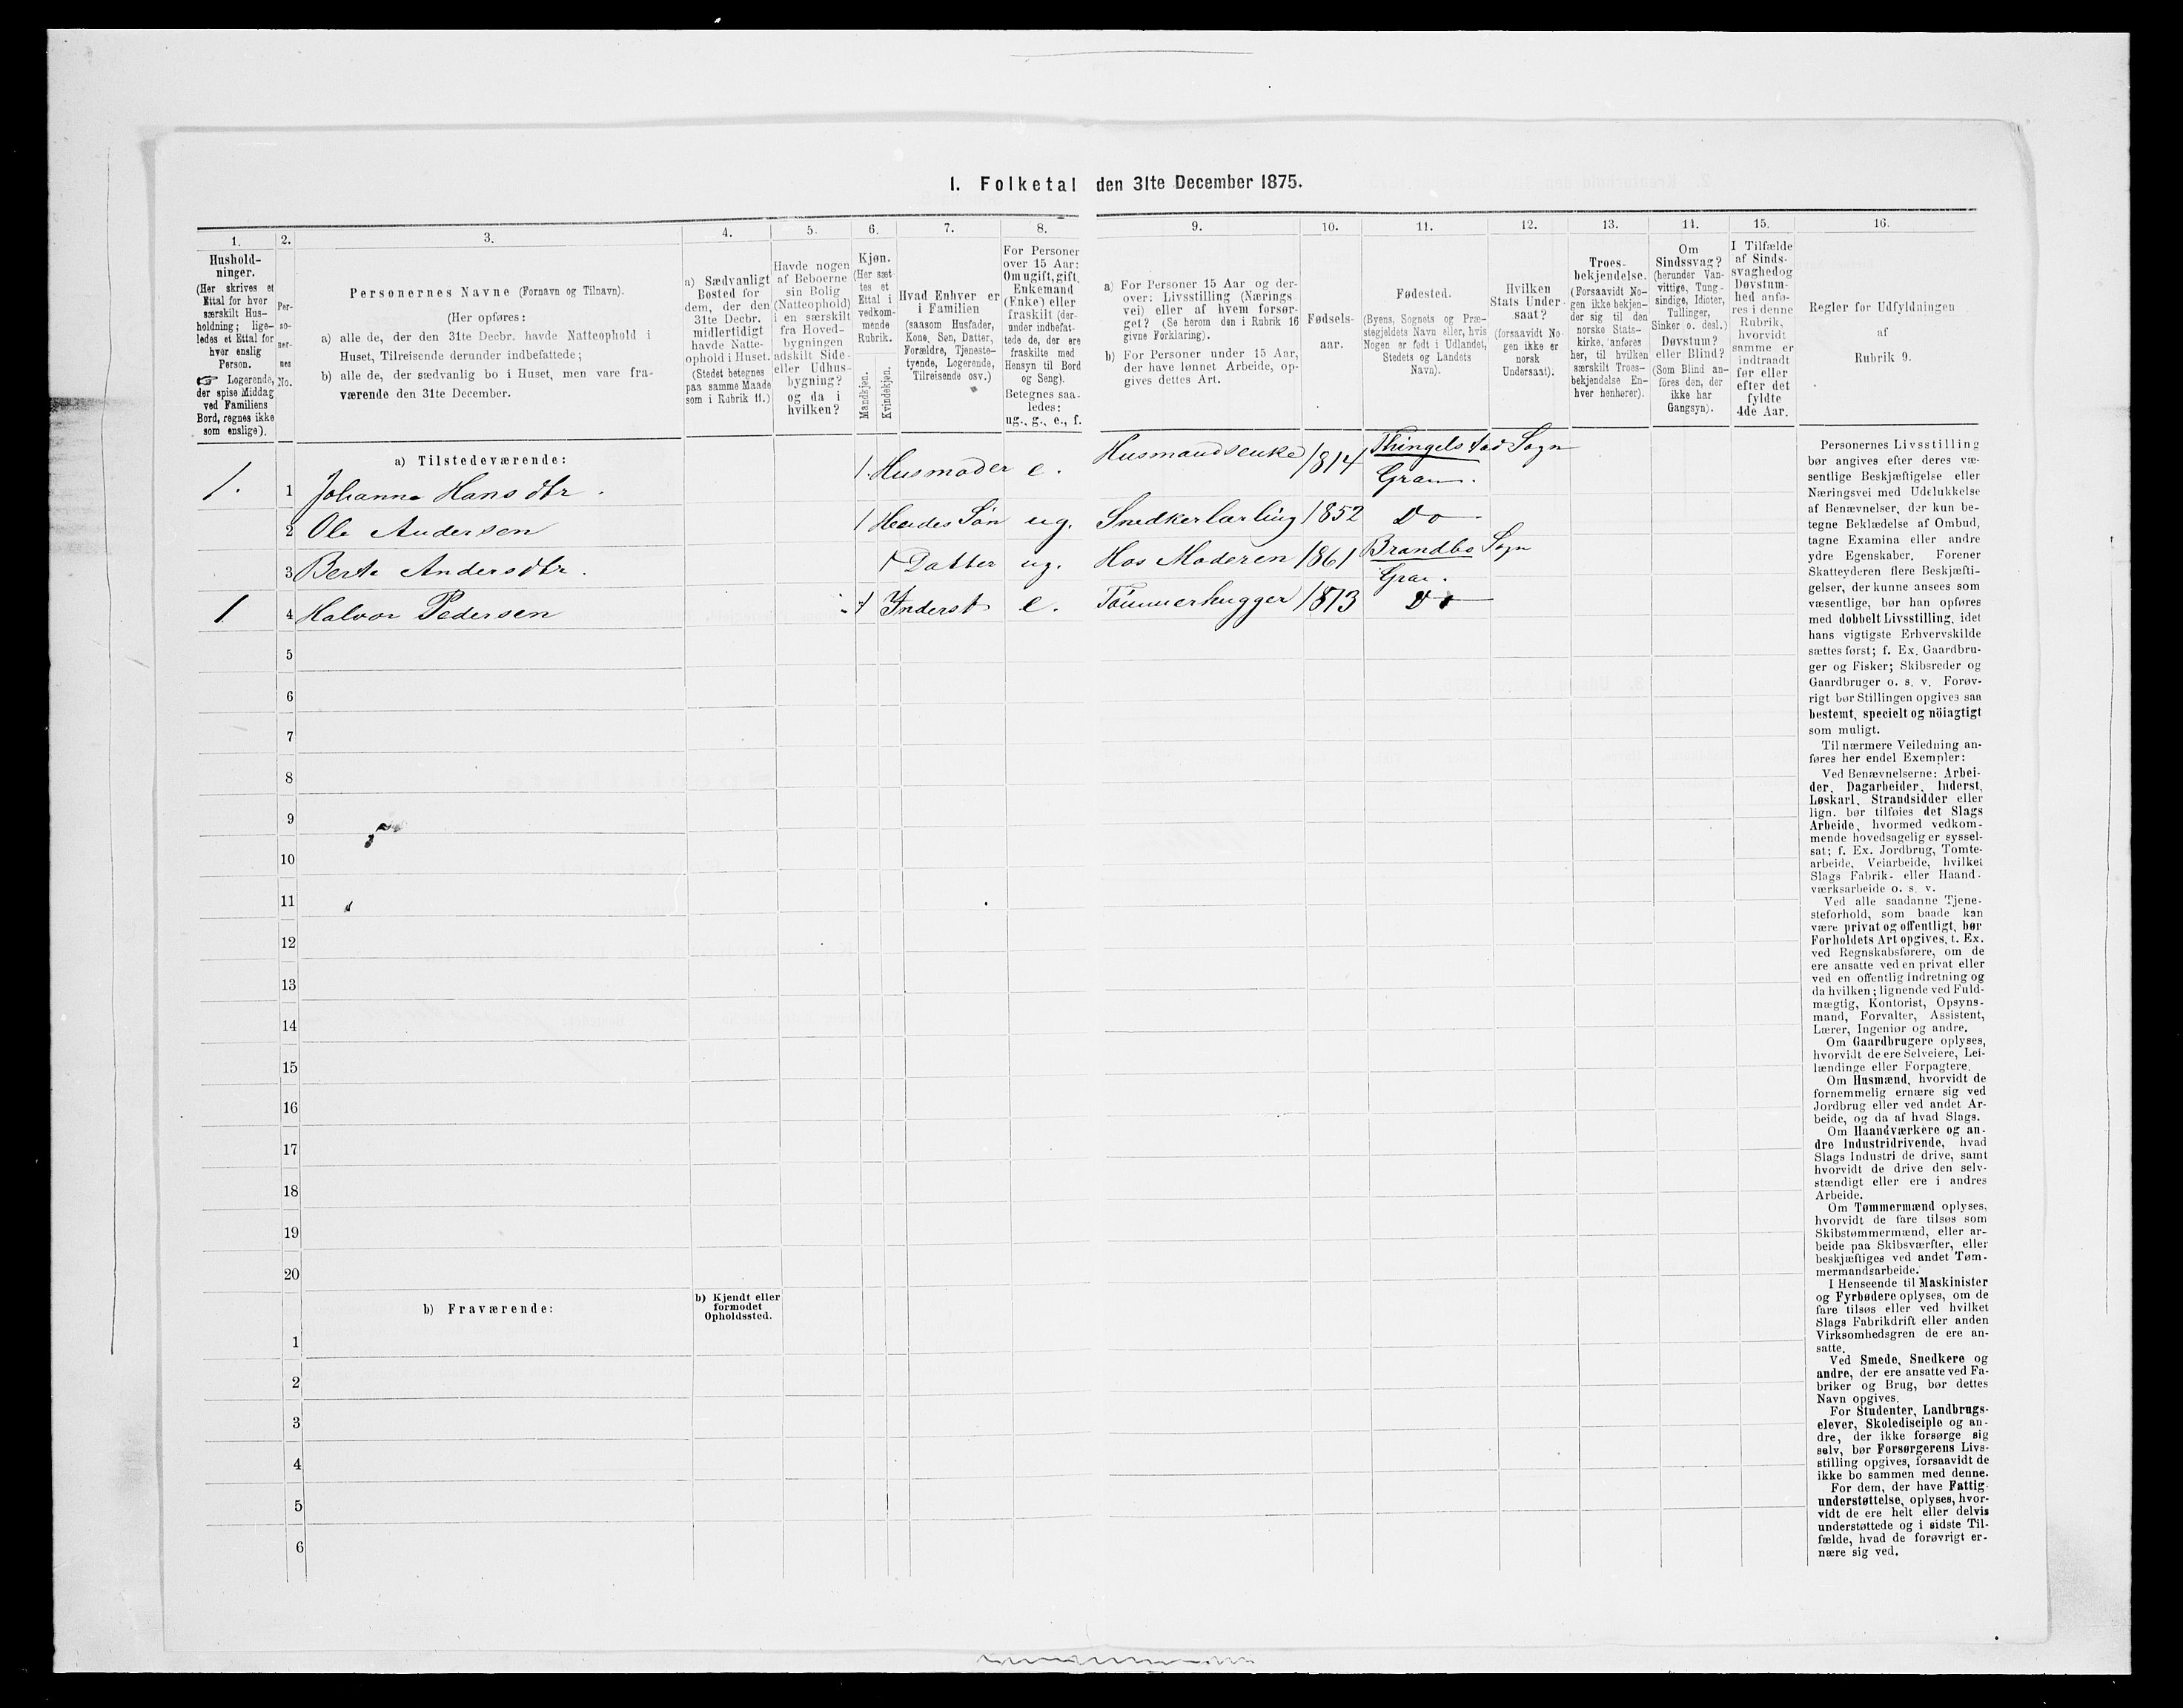 1. Folketal den 31te December 1875.
1.
2.
3.
4.
5.
6.
7.
8.
9.
10.
11.
12.
13.
14.
15.
16.
Hushold-
ninger.
(Her skrives et
Ettal for hver
særskilt Hus-
holdning; lige-
ledes et Ettal for
hver enslig
Person.
☞ Logerende,
der spise Middag
ved Familiens
Bord, regnes ikke
som enslige).
Per-
so-
ner-
nes
No.
Personernes Navne (Fornavn og Tilnavn).
(Her opføres:
a) alle de, der den 31te Decbr. havde Natteophold i
Huset, Tilreisende derunder indbefattede;
b) alle de, der sædvanlig bo i Huset, men vare fra-
værende den 31te December.
a) Sædvanligt
Bosted for
dem, der den
31te Decbr.
midlertidigt
havde Natte-
ophold i Huset.
(Stedet betegnes
paa samme Maade
som i Rubrik 11.)
Havde nogen
af Beboerne
sin Bolig
(Natteophold)
i en særskilt
fra Hoved-
bygningen
adskilt Side-
eller Udhus-
bygning?
og da i
hvilken?
Kjøn.
(Her sæt-
tes et
Ettal i
vedkom-
mende
Rubrik.
Mandkjøn.
Kvindekjøn.
Hvad Enhver er
i Familien
(saasom Husfader,
Kone, Søn, Datter,
Forældre, Tjeneste-
tyende, Logerende,
Tilreisende osv.)
For Personer
over 15 Aar:
Om ugift, gift,
Enkemand
(Enke) eller
fraskilt (der-
under indbefat-
tede de, der ere
fraskilte med
Hensyn til Bord
og Seng).
Betegnes saa-
ledes:
ug., g., e., f.
a) For Personer 15 Aar og der-
over: Livsstilling (Nærings-
vei) eller af hvem forsør-
get? (Se herom den i Rubrik 16
givne Forklaring).
b) For Personer under 15 Aar,
der have lønnet Arbeide, op-
gives dettes Art.
Fødsels-
aar.
Fødested.
(Byens, Sognets og Præ-
stegjeldets Navn eller, hvis
Nogen er født i Udlandet,
Stedets og Landets
Navn).
Hvilken
Stats Under-
saat?
(forsaavidt No-
gen ikke er
norsk
Undersaat).
Troes-
bekjendelse.
(Forsaavidt No-
gen ikke bekjen-
der sig til den
norske Stats-
kirke, anføres
her, til hvilken
særskilt Troes-
bekjendelse En-
hver henhører).
Om
Sindssvag?
(herunder Van-
vittige, Tung-
sindige, Idioter,
Tullinger,
Sinker o. desl.)
Døvstum?
eller Blind?
(Som Blind an-
føres den, der
ikke har
Gangsyn).
I Tilfælde
af Sinds-
svaghed og
Døvstum-
hed anfø-
res i denne
Rubrik,
hvorvidt
samme er
indtraadt
før eller
efter det
fyldte
4de Aar.
Regler for Udfyldningen
af
Rubrik 9.
a) Tilstedeværende:
1. 1 Johanne Hansdtr. 1. Husmoder e. Husmandsenke 1814 Thingelstad Sogn
Gran.
2 Ole Andersen 1 Hendes Søn ug. Snedkerlærling 1852 Do
3 Berte Andersdtr. 1 Datter ug. Hos Moderen 1861 Brandbo Sogn
Gran.
1 4 Halvor Pedersen 1 Inderst e. Tømmerhugger 1813 Do
5
6
7
8
9
10
11
12
13
14
15
16
17
18
19
20
b) Fraværende:
b) Kjendt eller
formodet
Opholdssted.
1
2
3
4
5
6
Personernes Livsstilling
bør angives efter deres væ-
sentlige Beskjæftigelse eller
Næringsvei med Udelukkelse
af Benævnelser, der kun be-
tegne Beklædelse af Ombud,
tagne Examina eller andre
ydre Egenskaber. Forener
Skatteyderen flere Beskjæfti-
gelser, der kunne ansees som
væsentlige, bør han opføres
med dobbelt Livsstilling, idet
hans vigtigste Erhvervskilde
sættes først; f. Ex. Gaardbru-
ger og Fisker; Skibsreder og
Gaardbruger o. s. v. Forøv-
rigt bør Stillingen opgives saa
bestemt, specielt og nöiagtigt
som muligt.
Til nærmere Veiledning an-
føres her endel Exempler:
Ved Benævnelserne: Arbei-
der, Dagarbeider, Inderst,
Løskarl, Strandsidder eller
lign. bør tilføies det Slags
Arbeide, hvormed vedkom-
mende hovedsagelig er syssel-
sat; f. Ex. Jordbrug, Tomte-
arbeide, Veiarbeide, hvilket
Slags Fabrik- eller Haand-
værksarbeide o. s. v.
Ved alle saadanne Tjene-
steforhold, som baade kan
være privat og offentligt, bør
Forholdets Art opgives, t. Ex.
ved Regnskabsførere, om de
ere ansatte ved en privat eller
ved en offentlig Indretning og
da hvilken; lignende ved Fuld-
mægtig, Kontorist, Opsyns-
mand, Forvalter, Assistent,
Lærer, Ingeniør og andre.
Om Gaardbrugere oplyses,
hvorvidt de ere Selveiere, Lei-
lændinge eller Forpagtere.
Om Husmænd, hvorvidt de
fornemmelig ernære sig ved
Jordbrug eller ved andet Ar-
beide, og da af hvad Slags.
Om Haandværkere og an-
dre Industridrivende, hvad
Slags Industri de drive, samt
hvorvidt de drive den selv-
stændigt eller ere i andres
Arbeide.
Om Tømmermænd oplyses,
hvorvidt de fare tilsøs som
Skibstømmermænd, eller ar-
beide paa Skibsværfter, eller
beskjæftiges ved andet Tøm-
mermandsarbeide.
I Henseende til Maskinister
og Fyrbødere oplyses, om de
fare tilsøs eller ved hvilket
Slags Fabrikdrift eller anden
Virksomhedsgren de ere an-
satte.
Ved Smede, Snedkere og
andre, der ere ansatte ved Fa-
briker og Brug, bør dettes
Navn opgives.
For Studenter, Landbrugs-
elever, Skoledisciple og an-
dre, der ikke forsørge sig
selv, bør Forsørgerens Livs-
stilling opgives, forsaavidt de
ikke bo sammen med denne.
For dem, der have Fattig-
understøttelse, oplyses, hvor-
vidt de ere helt eller delvis
understøttede og i sidste Til-
fælde, hvad de forøvrigt er-
nære sig ved.